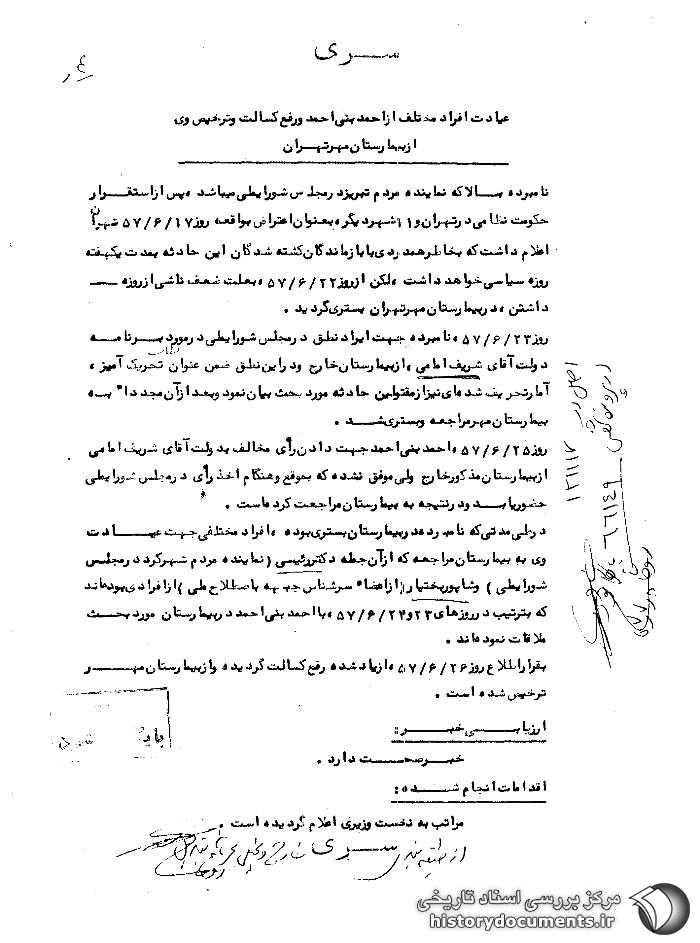 سری
عیادت افراد مختلف از احمد بنی احمد و رفع کسالت و ترخیص وی
از بیمارستان مهر تهران
نامبرده بالا که نماینده مردم تبریز در مجلس شورایملی میباشد ، پس از استقرار
حکومت نظامی در تهران و ۱۱ شهر دیگر ، بعنوان اعتراض بواقعه روز ۵۷/۶/۱۷ تهران
اعلام داشت که بخاطر همدردی با بازماندگان کشته شدگان این حادثه بمدت یکهفته
روزه سیاسی خواهد داشت ، لکن از روز ۵۷/۶/۲۲ ، بعلت ضعف ناشی از روزه
داشتن ، در بیمارستان مهر تهران بستری گردید .
روز ۵۷/۶/۲۳ ، نامبرده جهت ایراد نطق در مجلس شورایملی در مورد برنامه
دولت آقای شریف امامی ، از بیمارستان خارج و در این نطق ضمن عنوان تحریک آمیز ،
آمار تحریف شده ای نیز از مقتولین حادثه مورد بحث بیان نمود و بعد از آن مجدداً به
بیمارستان مهر مراجعه و بستری شد .
روز ۵۷/۶/۲۵ ، احمد بنی احمد جهت دادن رأی مخالف بدولت آقای شریف امامی
از بیمارستان مذکور خارج ولی موفق نشده که بموقع و هنگام اخذ رأی در مجلس شورایملی
حضور یابد و در نتیجه به بیمارستان مراجعت کرده است .
در طی مدتی که نامبرده در بیمارستان بستری بوده ، افراد مختلفی جهت عیادت
وی به بیمارستان مراجعه که از آن جمله دکتر رئیسی ( نماینده مردم شهرکرد در مجلس
شورایملی ) و شاپور بختیار ( از اعضاء سرشناس جبهه باصطلاح ملی ) از افرادی بوده اند
که بترتیب در روزهای ۲۳ و ۵۷/۶/۲۴ ، با احمد بنی احمد در بیمارستان مورد بحث
ملاقات نموده اند .
بقرار اطلاع روز ۵۷/۶/۲۶ ، از یاد شده رفع کسالت گردیده و از بیمارستان مهر
ترخیص شده است .
ارزیابی خبر :
خبر صحت دارد .
اقدامات انجام شده :
مراتب به نخست وزیری اعلام گردیده است .
سری
اصل در
۱۳۱۱۱۲
۶۶۱۴۹
مرکز بررسی اسناد تاریخی
historydocuments.ir